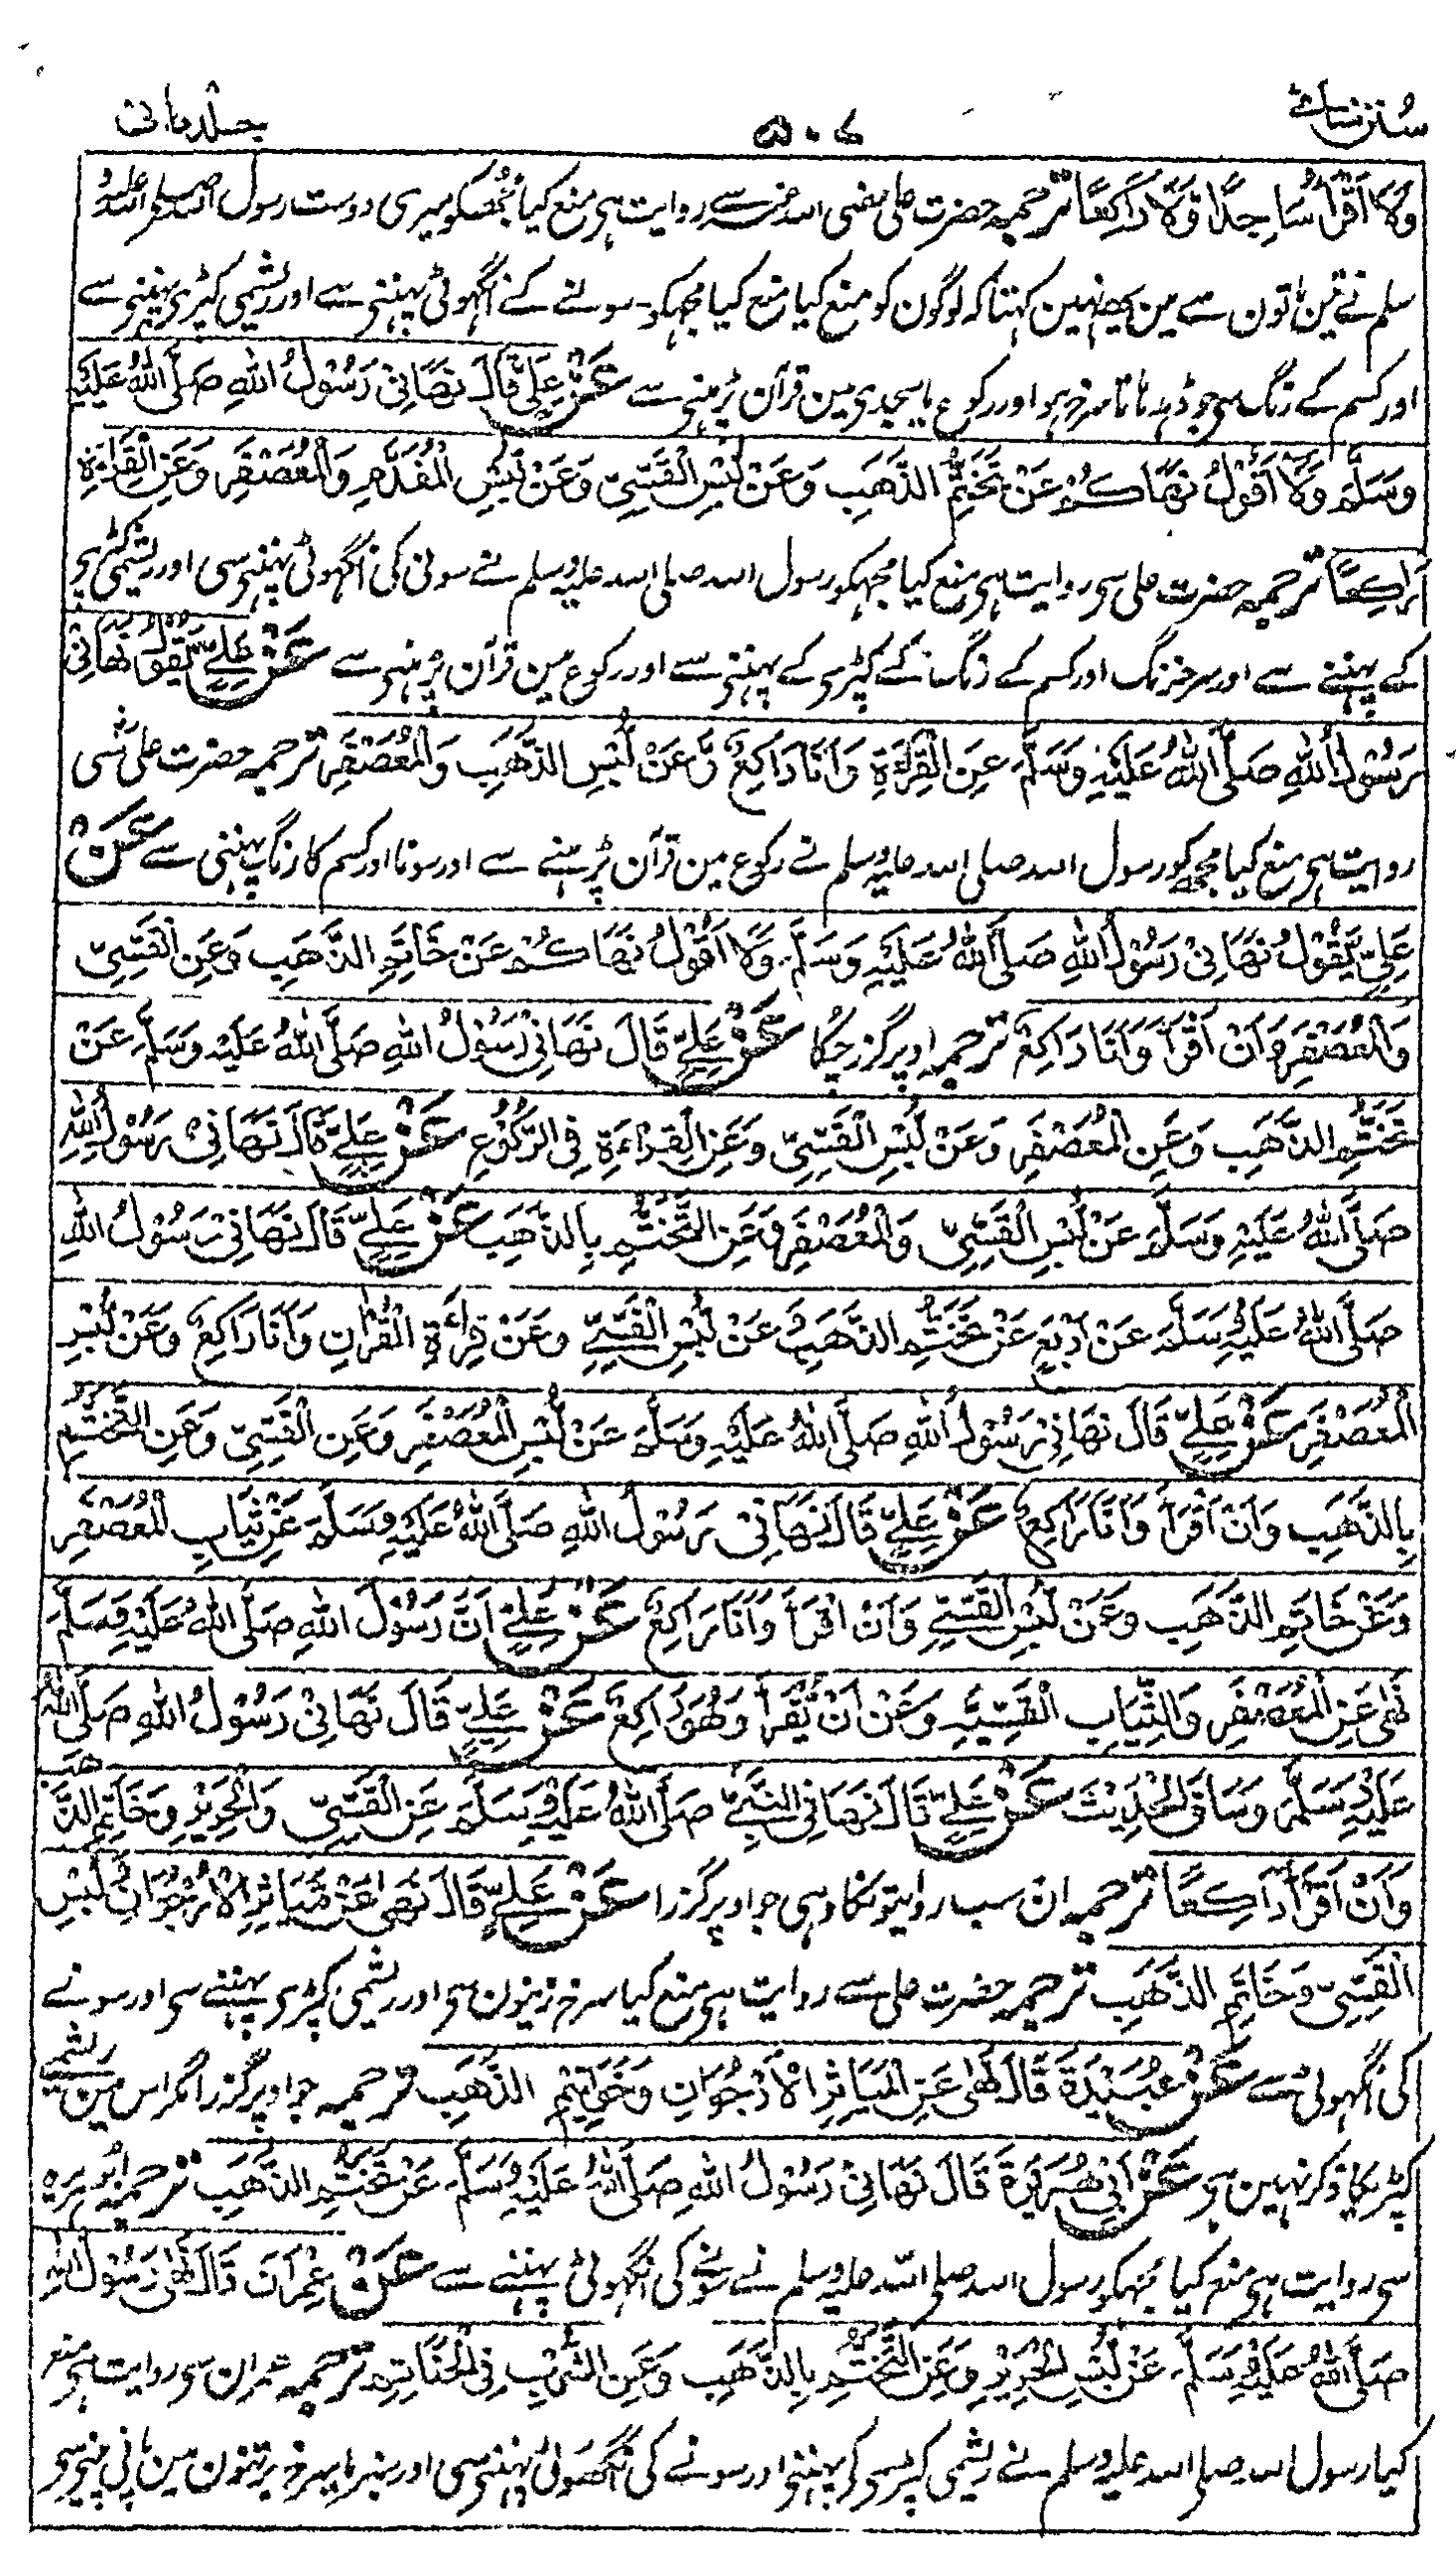 سُنن نسائے ۵۰۷ جلد ثانی
وَلَا اَقْرَأُ سَاجِدًا وَّلَا رَاكِعًا ترجمہ حضرت علی رضی اللہ عنہ سے روایت ہی منع کیا مجھکو میری دوست رسول اللہ صلی اللہ علیہ و
سلم نے تین باتون سے مین یہ نہین کہتا کہ لوگون کو منع کیا منع کیا مجہکو۔ سونے کے انگہوٹی پہننی سے اور ریشمی کپڑی پہننی سے
اور کسم کے رنگ سی جو ڈہڈہاتا سرخ ہو اور رکوع یا سجدی مین قرآن پڑہنی سے عَنْ عَلِيٍّ قَالَ نَهَانِيْ رَسُوْلُ اللهِ صَلَّى اللهُ عَلَيْهِ
وَسَلَّمَ وَلَا اَقُوْلُ نَهَاكُمْ عَنْ تَخَتُّمِ الذَّهَبِ وَعَنْ لُبْسِ الْقَسِّيِّ وَعَنْ لُبْسِ الْمُفَدَّمِ وَالْمُعَصْفَرِ وَعَنِ الْقِرَاءَةِ
رَاكِعًا ترجمہ حضرت علی سی روایت ہی منع کیا مجہکو رسول اللہ صلی اللہ علیہ وسلم نے سونی کی انگہوٹی پہننی سی اور ریشمی کپڑی
کے پہننے سے اور سرخ رنگ اور کسم کے رنگ کے کپڑی کے پہننی سے اور رکوع مین قرآن پڑہنی سے عَنْ عَلِيٍّ يَّقُوْلُ نَهَانِيْ
رَسُوْلُ اللهِ صَلَّى اللهُ عَلَيْهِ وَسَلَّمَ عَنِ الْقِرَاءَةِ وَاَنَا رَاكِعٌ وَّعَنْ لُبْسِ الذَّهَبِ وَالْمُعَصْفَرِ ترجمہ حضرت علی سی
روایت ہی منع کیا مجہکو رسول اللہ صلی اللہ علیہ وسلم نے رکوع مین قرآن پڑہنے سے اور سونا اور کسم کا رنگ پہننی سے عَنْ
عَلِيٍّ يَّقُوْلُ نَهَانِيْ رَسُوْلُ اللهِ صَلَّى اللهُ عَلَيْهِ وَسَلَّمَ وَلَا اَقُوْلُ نَهَاكُمْ عَنْ خَاتَمِ الذَّهَبِ وَعَنِ الْقَسِّيِّ
وَالْمُعَصْفَرِ وَاَنْ اَقْرَأَ وَاَنَا رَاكِعٌ ترجمہ اوپر گزر چکا عَنْ عَلِيٍّ قَالَ نَهَانِيْ رَسُوْلُ اللهِ صَلَّى اللهُ عَلَيْهِ وَسَلَّمَ عَنْ
تَخَتُّمِ الذَّهَبِ وَعَنِ الْمُعَصْفَرِ وَعَنْ لُبْسِ الْقَسِّيِّ وَعَنِ الْقِرَاءَةِ فِي الرُّكُوْعِ عَنْ عَلِيٍّ قَالَ نَهَانِيْ رَسُوْلُ اللهِ
صَلَّى اللهُ عَلَيْهِ وَسَلَّمَ عَنْ لُبْسِ الْقَسِّيِّ وَالْمُعَصْفَرِ وَعَنِ التَّخَتُّمِ بِالذَّهَبِ عَنْ عَلِيٍّ قَالَ نَهَانِيْ رَسُوْلُ اللهِ
صَلَّى اللهُ عَلَيْهِ وَسَلَّمَ عَنْ اَرْبَعٍ عَنْ تَخَتُّمِ الذَّهَبِ وَعَنْ لُبْسِ الْقَسِّيِّ وَعَنْ قِرَاءَةِ الْقُرْاٰنِ وَاَنَا رَاكِعٌ وَعَنْ لُبْسِ
الْمُعَصْفَرِ عَنْ عَلِيٍّ قَالَ نَهَانِيْ رَسُوْلُ اللهِ صَلَّى اللهُ عَلَيْهِ وَسَلَّمَ عَنْ لُبْسِ الْمُعَصْفَرِ وَعَنِ الْقَسِّيِّ وَعَنِ التَّخَتُّمِ
بِالذَّهَبِ وَاَنْ اَقْرَأَ وَاَنَا رَاكِعٌ عَنْ عَلِيٍّ قَالَ نَهَانِيْ رَسُوْلُ اللهِ صَلَّى اللهُ عَلَيْهِ وَسَلَّمَ عَنْ ثِيَابِ الْمُعَصْفَرِ
وَعَنْ خَاتَمِ الذَّهَبِ وَعَنْ لُبْسِ الْقَسِّيِّ وَاَنْ اَقْرَأَ وَاَنَا رَاكِعٌ عَنْ عَلِيٍّ اَنَّ رَسُوْلَ اللهِ صَلَّى اللهُ عَلَيْهِ وَسَلَّمَ
نَهٰى عَنِ الْمُعَصْفَرِ وَالثِّيَابِ الْقَسِّيَّةِ وَعَنْ اَنْ يَّقْرَأَ وَهُوَ رَاكِعٌ عَنْ عَلِيٍّ قَالَ نَهَانِيْ رَسُوْلُ اللهِ صَلَّى اللهُ
عَلَيْهِ وَسَلَّمَ وَسَاقَ الْحَدِيْثَ عَنْ عَلِيٍّ قَالَ نَهَانِي النَّبِيُّ صَلَّى اللهُ عَلَيْهِ وَسَلَّمَ عَنِ الْقَسِّيِّ وَالْحَرِيْرِ وَخَاتَمِ الذَّهَبِ
وَاَنْ اَقْرَأَ رَاكِعًا ترجمہ ان سب روایتونکا وہی جو اوپر گزرا عَنْ عَلِيٍّ قَالَ نَهٰى عَنْ مَيَاثِرِ الْاُرْجُوَانِ وَلُبْسِ
الْقَسِّيِّ وَخَاتَمِ الذَّهَبِ ترجمہ حضرت علی سے روایت ہی منع کیا سرخ زینون سی اور ریشمی کپڑی پہننے سی اور سونے
کی انگہوٹی سے عَنْ عَبِيْدَةَ قَالَ نَهٰى عَنِ الْمَيَاثِرِ الْاُرْجُوَانِ وَخَوَاتِيْمِ الذَّهَبِ ترجمہ جو اوپر گزرا مگر اس مین ریشمے
کپڑیکا ذکر نہین ہی عَنْ اَبِيْ هُرَيْرَةَ قَالَ نَهَانِيْ رَسُوْلُ اللهِ صَلَّى اللهُ عَلَيْهِ وَسَلَّمَ عَنْ تَخَتُّمِ الذَّهَبِ ترجمہ ابوہریرہ
سی روایت ہی منع کیا مجہکو رسول اللہ صلی اللہ علیہ وسلم نے سونے کی انگہوٹی پہننے سے عَنْ عِمْرَانَ قَالَ نَهٰى رَسُوْلُ اللهِ
صَلَّى اللهُ عَلَيْهِ وَسَلَّمَ عَنْ لُبْسِ الْحَرِيْرِ وَعَنِ التَّخَتُّمِ بِالذَّهَبِ وَعَنِ الشُّرْبِ فِي الْحَنَاتِمِ ترجمہ عمران سی روایت ہی منع
کیا رسول اللہ صلی اللہ علیہ وسلم نے ریشمی کپڑی کے پہننی اور سونے کی انگھوٹی پہننی سی اور سبز یا سرخ برتنون مین پانی پینی سی